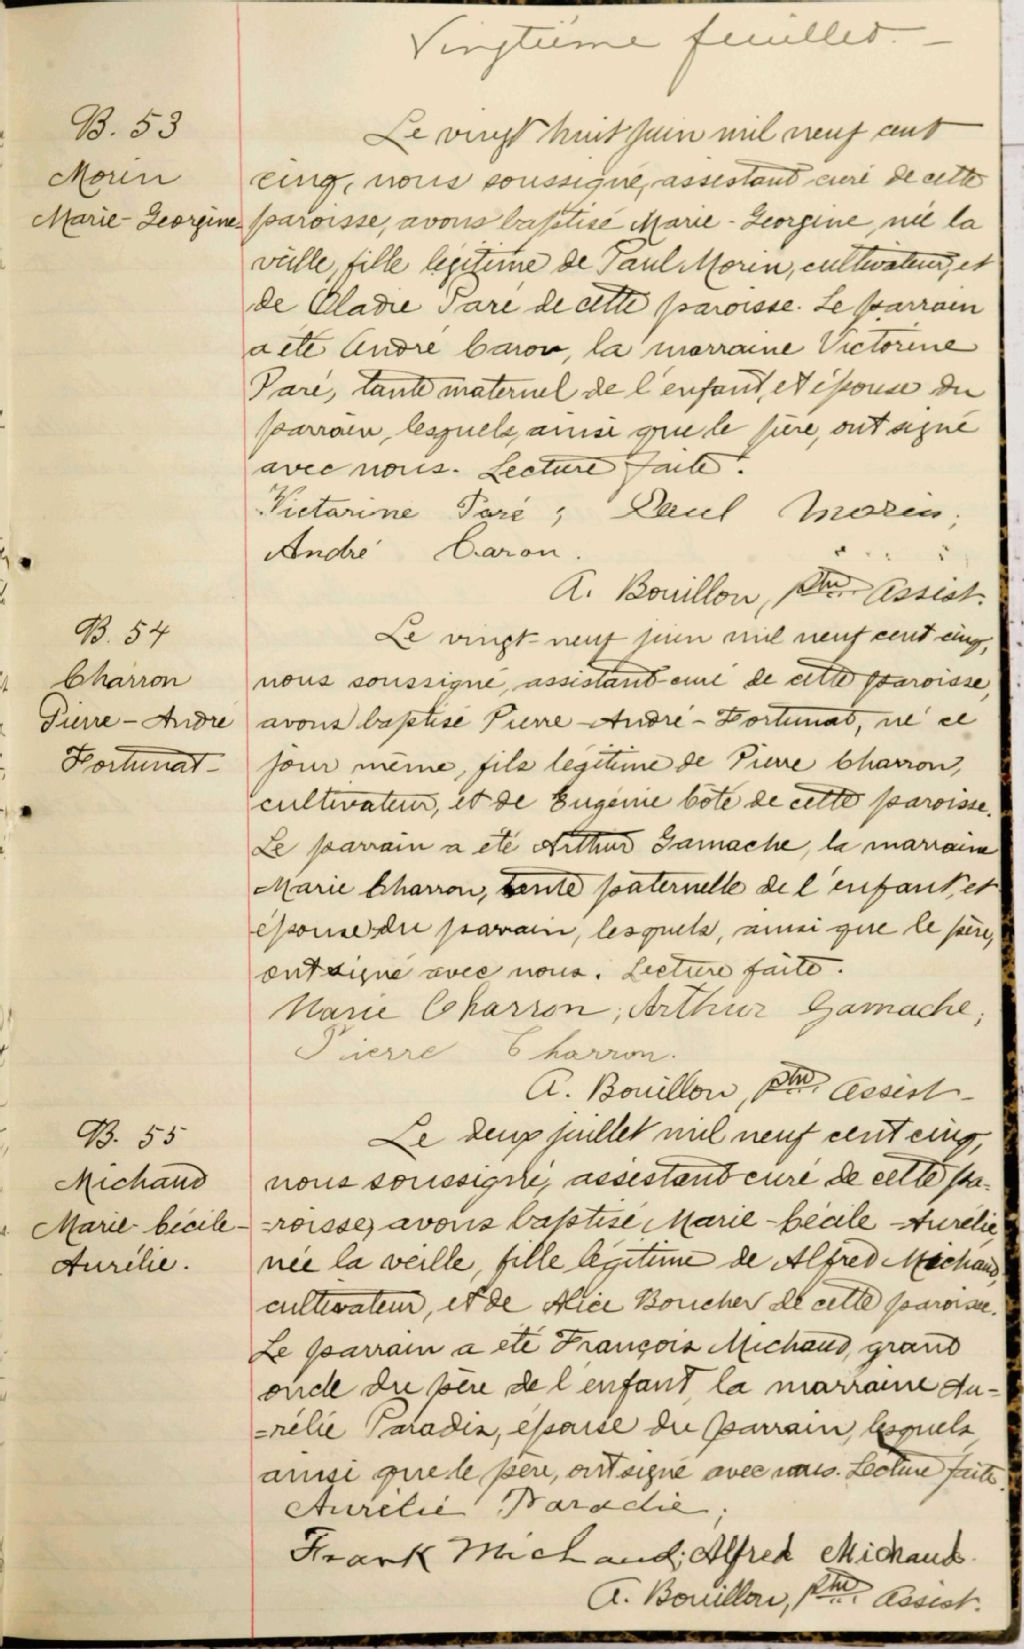 Vingtième feuillet.
B. 53
Morin
Marie-Georgine
Le vingt huit juin mil neuf cent
cinq, nous soussigné, assistant curé de cette
paroisse, avons baptisé Marie-Georgine, née la
veille, fille légitime de Paul Morin, cultivateur, et
de Eladie Paré de cette paroisse. Le parrain
a été André Caron, la marraine Victorine
Paré, tante maternel de l'enfant, et épouse du
parrain, lesquels, ainsi que le père, ont signé
avec nous. Lecture faite.
Victarine Paré ; Paul Morin ;
André Caron.
A. Bouillon, ptre assist.
B. 54
Charron
Pierre-André
Fortunat
Le vingt-neuf juin mil neuf cent cinq,
nous soussigné, assistant-curé de cette paroisse,
avons baptisé Pierre-André-Fortunat, né ce
jour même, fils légitime de Pierre Charron,
cultivateur, et de Eugénie Coté de cette paroisse.
Le parrain a été Arthur Gamache, la marraine
Marie Charron, tante paternelle de l'enfant, et
épouse du parrain, lesquels, ainsi que le père,
ont signé avec nous. Lecture faite.
Marie Charron ; Arthur Gamache ;
Pierre Charron.
A. Bouillon, ptre assist-
B. 55
Michaud
Marie-Cécile-
Aurélie.
Le deux juillet mil neuf cent cinq,
nous soussigné, assistant curé de cette pa-
=roisse, avons baptisé Marie-Cécile-Aurélie,
née la veille, fille légitime de Alfred Michaud,
cultivateur, et de Alice Boucher de cette paroisse.
Le parrain a été François Michaud, grand
oncle du père de l'enfant, la marraine Au-
=rélie Paradis, épouse du parrain, lesquels,
ainsi que le père, ont signé avec nous. Lecture faite.
Aurélie Paradie ;
Frank Michaud ; Alfred Michaud.
A. Bouillon, ptre assist.